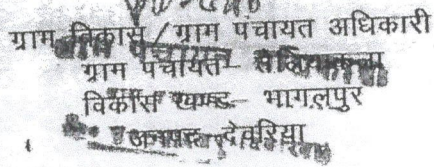 ग्राम विकास / ग्राम पंचायत अधिकारी
ग्राम पंचायत-
विकास खण्ड- भागलपुर
जनपद देवरिया